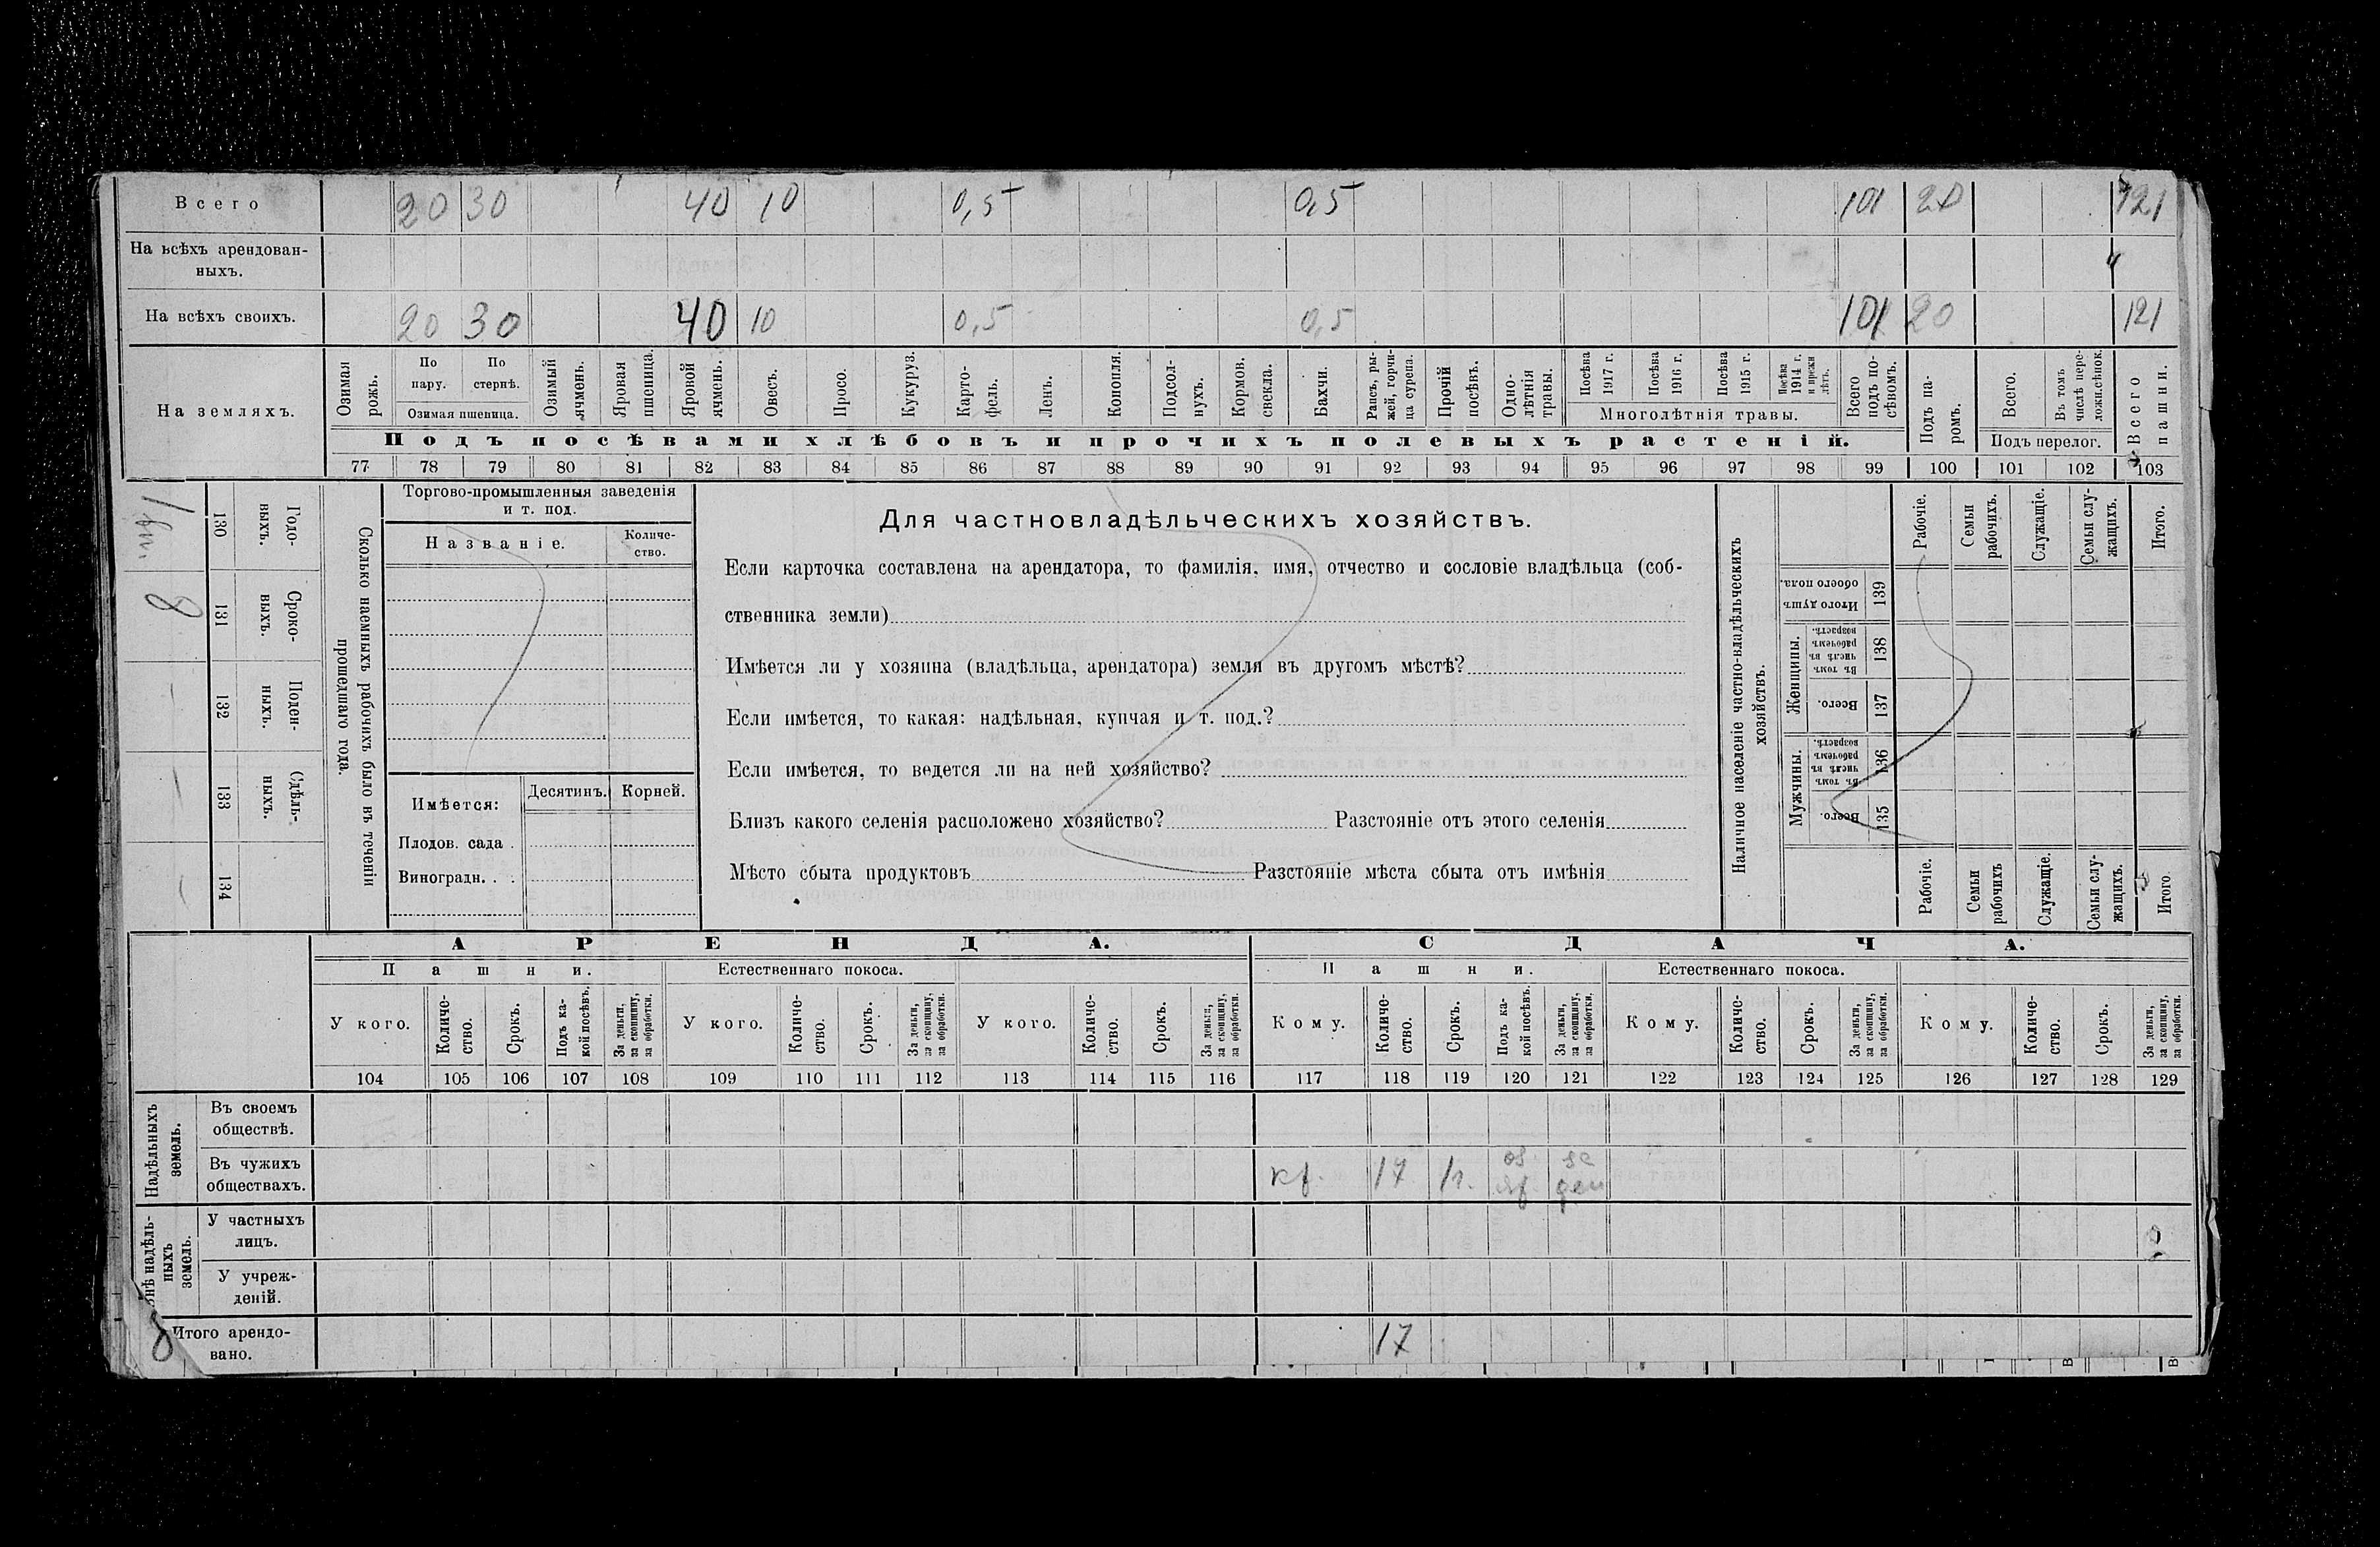 Всего 20 30 40 10 0,5 0,5 101 20 121
На всѣхъ арендован-
ныхъ.
На всѣхъ своихъ. 20 30 40 10 0,5 0,5 101 20 121
На земляхъ.
Озимая рожь.
По пару.
По стернѣ.
Озимая пшеница.
Озимый ячмень.
Яровая пшеница.
Яровой ячмень.
Овесъ.
Просо.
Кукуруз.
Карто-
фель.
Ленъ.
Конопля.
Подсол-
нухъ.
Кормов. свекла.
Бахчи.
Рапсъ, ры-
жей, горчи-
ца сурепа.
Прочій посѣвъ.
Одно-
лѣтнія травы.
Посѣва 1917 г.
Посѣва 1916 г.
Посѣва 1915 г.
Посѣва 1914 г. и прежн лѣтъ.
Многолѣтнія травы.
Всего подъ по-
сѣвомъ.
Подъ па-
ромъ.
Всего.
Въ томъ числѣ пере-
ложн.сѣнок.
Подъ перелог.
Всего пашни.
Подъ посѣвами хлѣбовъ и прочихъ полевыхъ растеній.
77 78 79 80 81 82 83 84 85 86 87 88 89 90 91 92 93 94 95 96 97 98 99 100 101 102 103
Сколько наемныхъ рабочихъ было въ теченіи
прошедшаго года.
Годо-
выхъ.
130
Сроко-
выхъ.
131
8
Поден-
ныхъ.
132
Сдѣль-
ныхъ.
133
134
Торгово-промышленныя заведенія
и т. под.
Названіе.
Количе-
ство.
Имѣется:
Десятинъ.
Корней.
Плодов. сада .
Виноградн. . .
Для частновладѣльческихъ хозяйствъ.
Если карточка составлена на арендатора, то фамилія, имя, отчество и сословіе владѣльца (соб-
ственника земли)
Имѣется ли у хозяина (владѣльца, арендатора) земля въ другомъ мѣстѣ?
Если имѣется, то какая: надѣльная, купчая и т. под.?
Если имѣется, то ведется ли на ней хозяйство?
Близъ какого селенія расположено хозяйство? Разстояніе отъ этого селенія
Мѣсто сбыта продуктовъ Разстояніе мѣста сбыта отъ имѣнія
Наличное населеніе частно-владѣльческихъ
хозяйствъ.
Рабочіе.
Семьи рабочихъ.
Служащіе.
Семьи слу-
жащихъ.
Итого.
Итого душ обоего пола.
139
Женщины.
Въ томъ числѣ въ рабочемъ возрастѣ.
138
Всего.
137
Мужчины.
Въ томъ числѣ въ рабочемъ возрастѣ.
136
Всего.
135
Рабочіе.
Семьи рабочихъ
Служащіе.
Семьи слу-
жащихъ.
Итого.
АРЕНДА. СДАЧА.
Пашни. Естественнаго покоса. Пашни. Естественнаго покоса.
У кого.
Количе-
ство.
Срокъ.
Подъ ка-
кой посѣвъ.
За деньги, за скопщину, за обработки.
У кого.
Количе-
ство.
Срокъ.
За деньги, за скопщину, за обработки.
У кого.
Количе-
ство.
Срокъ.
За деньги, за скопщину, за обработки.
Кому.
Количе-
ство.
Срокъ.
Подъ ка-
кой посѣвъ.
За деньги, за скопщину, за обработки.
Кому.
Количе-
ство.
Срокъ.
За деньги, за скопщину, за обработки.
Кому.
Количе-
ство.
Срокъ.
За деньги, за скопщину, за обработки.
104 105 106 107 108 109 110 111 112 113 114 115 116 117 118 119 120 121 122 123 124 125 126 127 128 129
Надѣльныхъ земель.
Въ своемъ
обществѣ.
Въ чужихъ
обществахъ.
17
надѣль-
ныхъ
земель.
У частныхъ
лицъ.
У учреж-
деній.
Итого арендо-
вано.
17
8